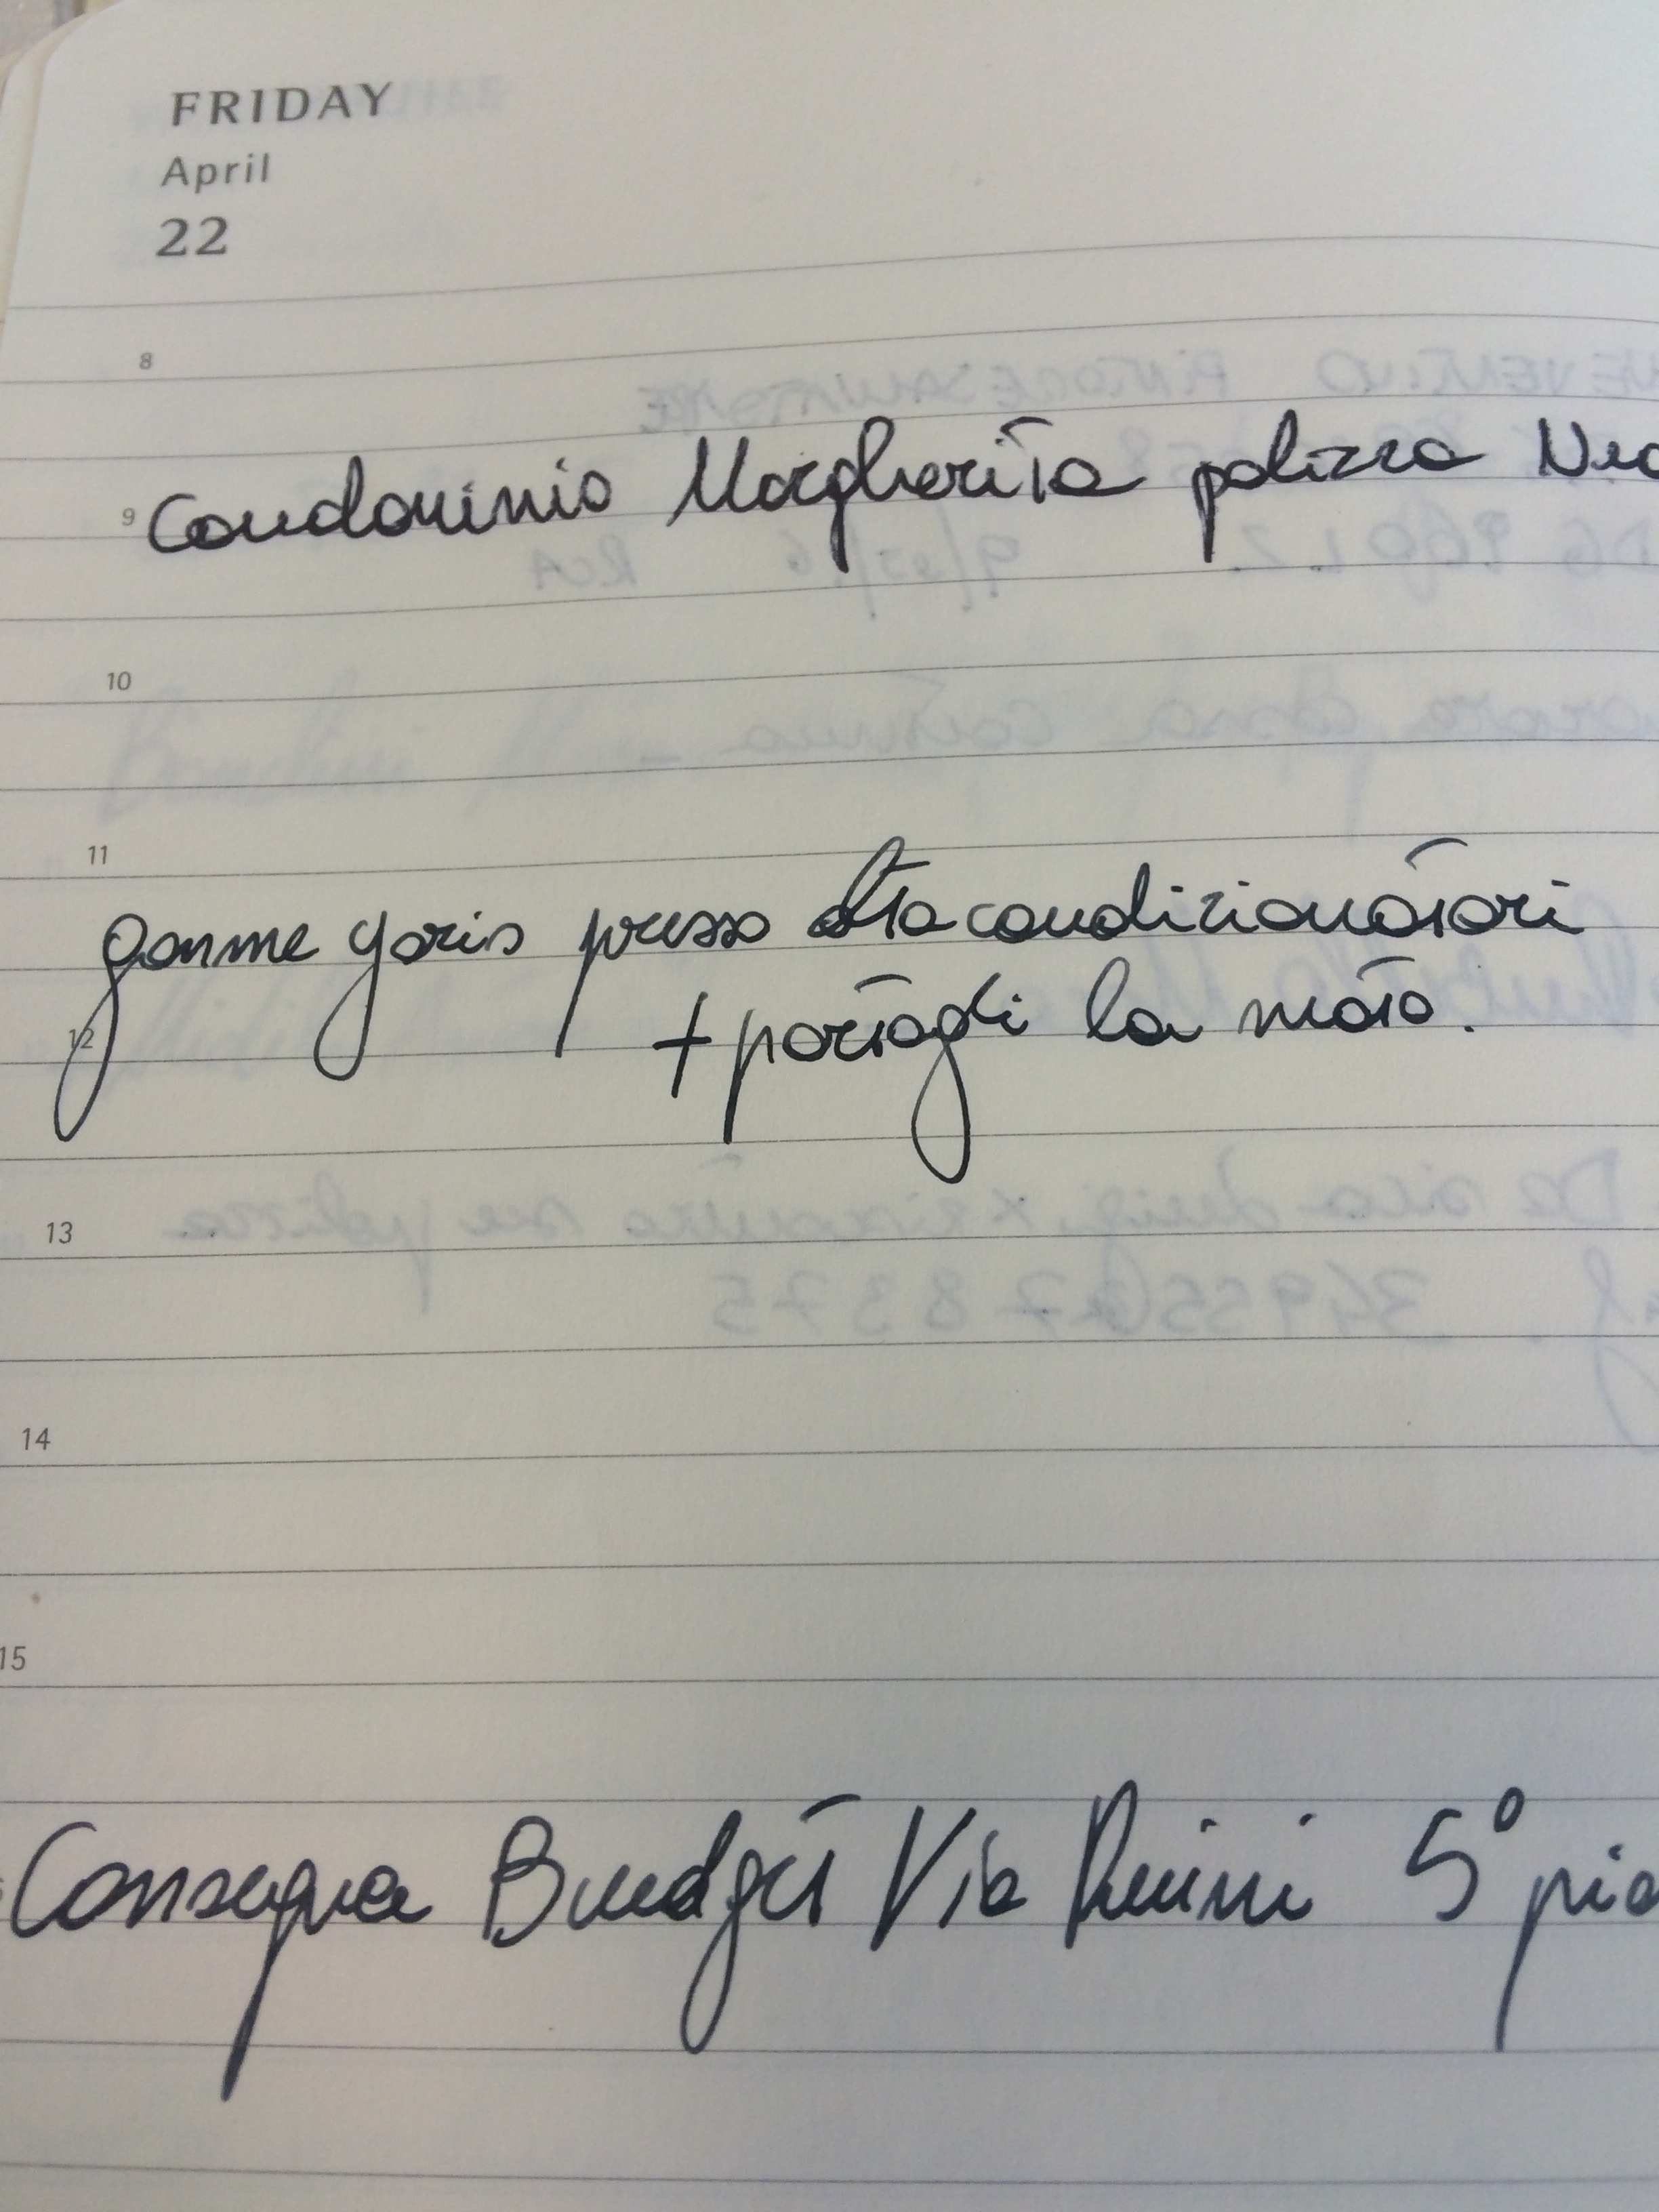 FRIDAY
April
22
8
9 Condominio Margherita polizza
10
11
gomme yaris presso Stacondizionatori
12 + portagli la moto.
13
14
15
Consegna Budget Via Ruini 5° pia